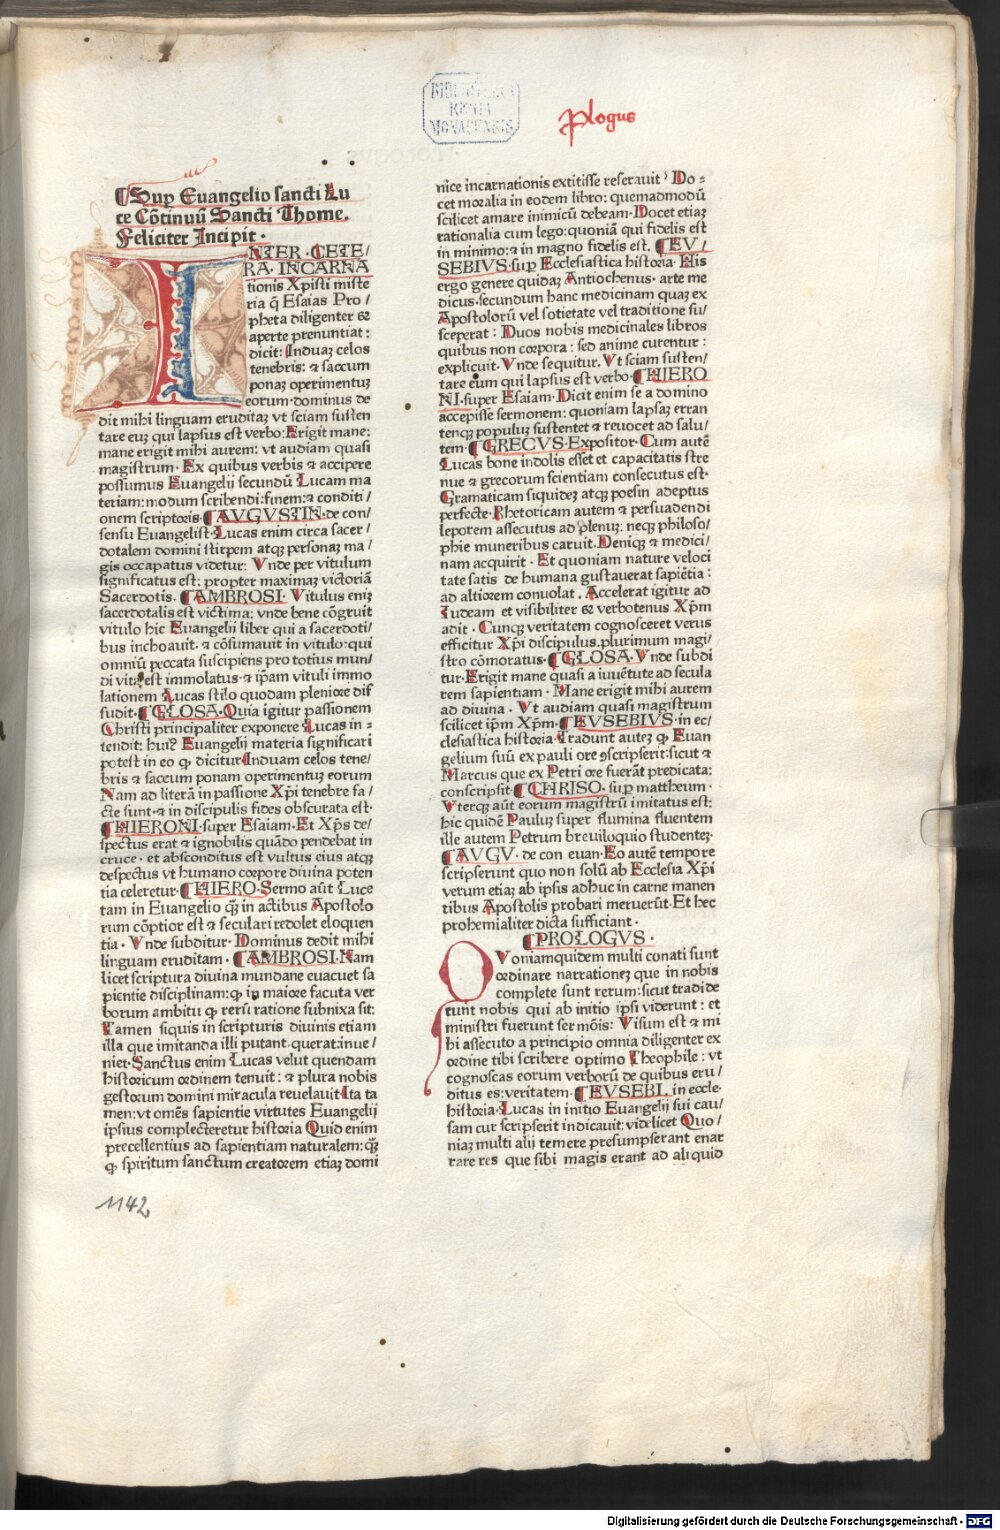 BIBLIOTHECA
REGIA
MONACENSIS
Plogus
¶Sup Euangelio sancti Lu
ce Cõtinuũ Sancti Thome.
Feliciter Incipit·
INTER·CETE/
RA·INCARNA
tionis Xpisti miste
ria q̃ Esaias Pro/
pheta diligenter &
aperte prenuntiat:
dicit: Induaꝫ celos
tenebris: ⁊ saccum
ponaꝫ operimentuꝫ
eorum·dominus de
dit mihi linguam eruditaꝫ vt sciam susten
tare euꝫ qui lapsus est verbo:Erigit mane:
mane erigit mihi aurem: vt audiam quasi
magistrum· Ex quibus verbis ⁊ accipere
possumus Euangelij secundũ Lucam ma
teriam:modum scribendi:finem:⁊ conditi/
onem scriptoris·¶AUGVSTIN·de con/
sensu Euangelist·Lucas enim circa sacer/
dotalem domini stirpem atqꝫ personaꝫ ma/
gis occapatus videtur: Vnde per vitulum
significatus est: propter maximaꝫ victoriã
Sacerdotis. ¶AMBROSI· Vitulus eniꝫ
sacerdotalis est victima: vnde bene cõgruit
vitulo hic Euangelij liber qui a sacerdoti/
bus inchoauit· ⁊ cõsumauit in vitulo:qui
omniũ peccata suscipiens pro totius mun/
di vita est immolatus·⁊ ip̃am vituli immo
lationem Lucas stilo quodam pleniore dif
fudit·¶GLOSA·Quia igitur passionem
Christi principaliter exponere Lucas in=
tendit: huiꝰ Euangelij materia significari
potest in eo ꝙ dicitur·Induam celos tene/
bris ⁊ saccum ponam operimentuꝫ eorum
Nam ad literã in passione Xp̃i tenebre fa/
cte sunt·⁊ in discipulis fides obscurata est·
¶HIERONI·super Esaiam·Et Xp̃s de/
spectus erat ⁊ ignobilis quãdo pendebat in
cruce· et absconditus est vultus eius atqꝫ
despectus vt humano corpore diuina poten
tia celeretur·¶HIERO·Sermo aũt Luce
tam in Euangelio qꝫ̃ in actibus Apostolo
rum cõptior est ⁊ seculari redolet eloquen
tia· Vnde subditur· Dominus dedit mihi
linguam eruditam· ¶AMBROSI·Nam
licet scriptura diuina mundane euacuet sa
pientie disciplinam:ꝙ in maiore facuta ver
borum ambitu ꝙ rerũ ratione subnixa sit:
Tamen siquis in scripturis diuinis etiam
illa que imitanda illi putant·querat:inue/
niet·Sanctus enim Lucas velut quendam
historicum ordinem tenuit: ⁊ plura nobis
gestorum domini miracula reuelauit·Ita ta
men:vt om̃es sapientie virtutes Euangelij
ipsius complecteretur historia Quid enim
precellentius ad sapientiam naturalem:qꝫ̃
ꝙ spiritum sanctum creatorem etiaꝫ domi
nice incarnationis extitisse reserauit? Do=
cet moralia in eodem libro: quemadmodũ
scilicet amare inimicũ debeam·Docet etiaꝫ
rationalia cum lego:quoniã qui fidelis est
in minimo:⁊ in magno fidelis est· ¶EV/
SEBIVS·sup Ecclesiastica historia·His
ergo genere quidaꝫ Antiochenus· arte me
dicus·secundum hanc medicinam quaꝫ ex
Apostolorũ vel sotietate vel traditione su/
sceperat: Duos nobis medicinales libros
quibus non corpora: sed anime curentur:
explicuit·Vnde sequitur·Vt sciam susten/
tare eum qui lapsus est verbo·¶HIERO
NI·super Esaiam·Dicit enim se a domino
accepisse sermonem: quoniam lapsaꝫ erran
temqꝫ populuꝫ sustentet ⁊ reuocet ad salu/
tem·¶GRECVS·Expositor·Cum autẽ
Lucas bone indolis esset et capacitatis stre
nue ⁊ grecorum scientiam consecutus est·
Gramaticam siquideꝫ atqꝫ poesin adeptus
perfecte·Rhetoricam autem ⁊ persuadendi
leporem assecutus ad plenuꝫ: neqꝫ philoso/
phie muneribus caruit·Deniqꝫ ⁊ medici/
nam acquirit· Et quoniam nature veloci
tate satis de humana gustauerat sapiẽtia:
ad altiorem conuolat. Accelerat igitur ad
Iudeam et visibiliter & verbotenus Xp̃m
adit· Cunqꝫ veritatem cognosceret verus
efficitur Xp̃i discipulus·plurimum magi/
stro cõmoratus·¶GLOSA·Vnde subdi
tur·Erigit mane quasi a iuuẽtute ad secula
rem sapientiam· Mane erigit mihi aurem
ad diuina· Vt audiam quasi magistrum
scilicet ip̃m Xp̃m·¶EVSEBIVS·in ec/
clesiastica historia·Tradunt auteꝫ ꝙ Euan
gelium suũ ex pauli ore ꝯscripserit:sicut ⁊
Marcus que ex Petri ore fuerãt predicata:
conscripsit·¶CHRISO·sup mattheum·
Vterqꝫ aũt eorum magistrũ imitatus est:
hic quidẽ Pauluꝫ super flumina fluentem
ille autem Petrum breuiloquio studenteꝫ·
¶AVGV·de con euan·Eo autẽ tempore
scripserunt quo non solũ ab Ecclesia Xp̃i
verum etiaꝫ ab ipsis adhuc in carne manen
tibus Apostolis probari meruerũt·Et hec
prohemialiter dicta sufficiant·
¶PROLOGVS·
QVoniamquidem multi conati sunt
ordinare narrationeꝫ que in nobis
complete sunt rerum:sicut tradide
runt nobis qui ab initio ipsi viderunt: et
ministri fuerunt sermõis: Visum est ⁊ mi
hi assecuto a principio omnia diligenter ex
ordine tibi scribere optimo Theophile: vt
cognoscas eorum verborũ de quibus eru/
ditus es:veritatem·¶EVSEBI. in eccle·
historia·Lucas in initio Euangelij sui cau/
sam cur scripserit indicauit: videlicet Quo/
niaꝫ multi alij temere presumpserant enar
rare res que sibi magis erant ad aliquid
1142
Digitalisierung gefördert durch die Deutsche Forschungsgemeinschaft - DFG